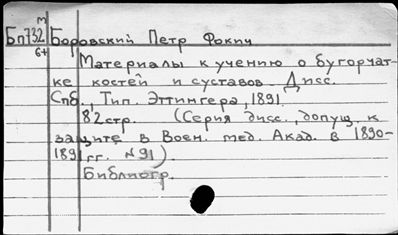 м
Бп732 Боровский Петр Фокич
6+
Материалы к учению о бугорчат-
ке костей и суставов Дисс.
Спб., Тип. Эттингера, 1891.
82 стр. (Серия дисс., допущ. к
защите в Воен. мед. Акад. в 1890-
1891 гг. №91).
Библиогр.